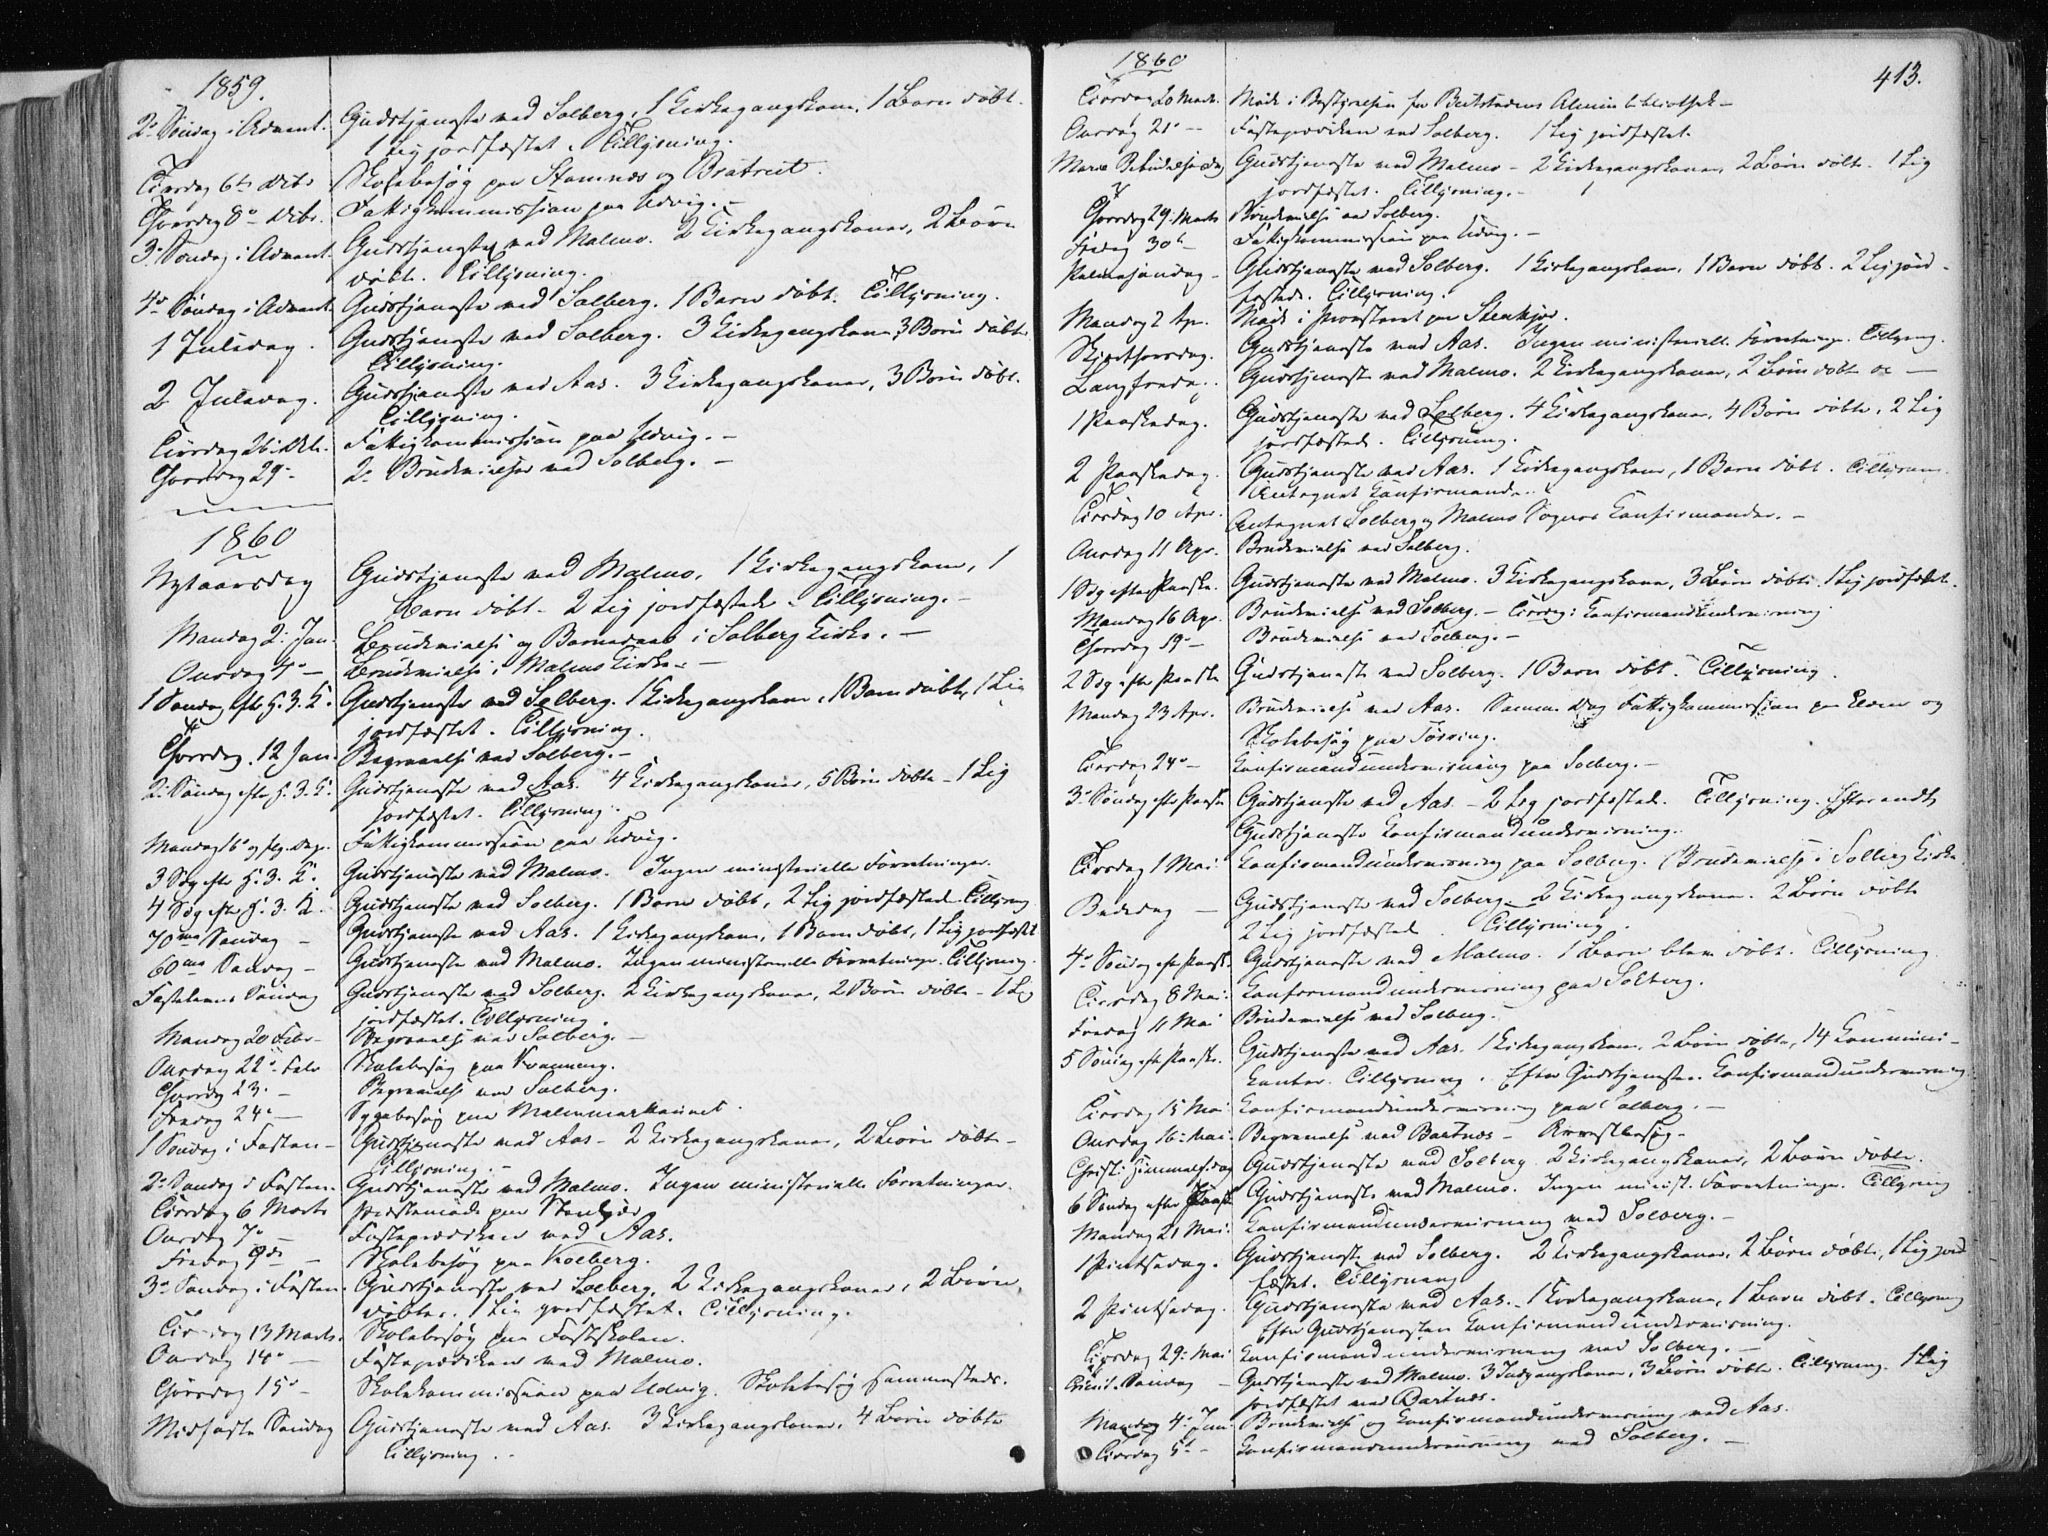 1859.
2. Søndag i Advent. Gudstjeneste ved Solberg, 1 Kirkegangskone, 1 Barn døbt.
1 Lig jordfæstet. Tillysning.
Tirsdag 6te Decbr Skolebesøg paa Stamnæs og Bratreit.
Thorsdag 8de Decbr. Fattigkommission paa Udvig. –
3. Søndag i Advent. Gudstjeneste ved Malmo. 2 Kirkegangskoner, 2 Børn
døbt. Tillysning.
4de Søndag i Advent. Gudstjeneste ved Solberg. 1 Barn døbt. Tillysning.
1 Juledag. Gudstjeneste ved Solberg. 3 Kirkegangskoner, 3 Børn døbte
Tillysning.
2 Juledag. Gudstjeneste ved Aas. 3 Kirkegangskoner, 3 Børn døbt.
Tillysning.
Fattigkommission paa Udvig. –
Thorsdag 29 – 2 Brudevielser ved Solberg. –
1860
Nytaarsdag Gudstjeneste ved Malmo, 1 Kirkegangskone, 1
Barn døbt – 2 Lig jordfæstede. Tillysning. –
Mandag 2. Jan. Brudevielse og Barnedaab i Solberg Kirke. –
Onsdag 4de – Brudevielse i Malmo Kirke. –
1 Søndag eft. H. 3. K. Gudstjeneste ved Solberg. 1 Kirkegangskone, 1 Barn døbt, 1 Lig
jordfæstet. Tillysning.
Thorsdag 12 Jan. Begravelse ved Solberg. –
2. Søndag eft. H. 3. K. Gudstjeneste ved Aas. 4 Kirkegangskoner, 5 Børn døbte – 1 Lig
jordfæstet. Tillysning.
Mandag 16 og flg. Dag. Fattigkommission paa Udvig.
3 Søg efter H. 3. K. Gudstjeneste ved Malmo. Ingen ministerielle Forretninger.
4 Søg efter H. 3. K. Gudstjeneste ved Solberg. 1 Barn døbt, 2 Lig jordfæstede. Tillysning
70ma Søndag – Gudstjeneste ved Aas. 1 Kirkegangskone, 1 Barn døbt, 1 Lig jordfæstet
60ma Søndag – Gudstjeneste ved Malmo. Ingen ministerielle Forretninger. Tillysning.
Fastelavns Søndag Gudstjeneste ved Solberg. 2 Kirkegangskoner, 2 Børn døbte – 1 Lig
jordfæstet. Tillysning.
Mandag 20 Febr. Begravelse ved Solberg. –
Onsdag 22. Febr Skolebesøg paa
Thorsdag 23. – Begravelse ved Solberg.
Fredag 24de – Sygebesøg paa
1 Søndag i Fasten – Gudstjeneste ved Aas – 2 Kirkegangskoner, 2 Børn døbte –
Tillysning. –
2. Søndag i Fasten. Gudstjeneste ved Malmo. Ingen ministerielle Forretninger.
Tirsdag 6 Marts Præstemøde paa Stenkjær
Onsdag 7de – Fasteprædiken ved Aas.
Fredag 9de – Skolebesøg paa
3. Søndag i Fasten Gudstjeneste ved Solberg, 2 Kirkegangskoner, 2 Børn
døbte. 1 Lig jordfæstet. Tillysning.
Tirsdag 13 Marts. Skolebesøg paa Fastskolen.
Onsdag 14de – Fasteprædiken ved Malmo.
Thorsdag 15de – Skolekommission paa Udvig. Skolebesøg sammesteds.
Midfaste Søndag Gudstjeneste ved Aas. 3 Kirkegangskoner, 4 Børn døbte
Tillysning. –
1860
413.
Tirsdag 20 Marts. Møde i Bestyrelsen for Beitstadens Almue bibliothek –
Onsdag 21de – Fasteprædiken ved Solberg. 1 Lig jordfæstet.
Mariæ Bebudelsesdag Gudstjeneste ved Malmo – 2 Kirkegangskoner, 2 Børn døbte. 1 Lig
jordfæstet. Tillysning. –
Thorsdag 29. Marts Brudevielse ved Solberg.
Fredag 30te – Fattigkommission paa Udvig. –
Palmesøndag – Gudstjeneste ved Solberg. 1 Kirkegangskone, 1 Barn døbt. 2 Lig jord-
fæstede. Tillysning.
Mandag 2 Apr. Møde i Provsteret paa Stenkjær.
Skjærthorsdag. Gudstjeneste ved Aas. Ingen ministerielle Forretninger. Tillysning.
Langfredag. Gudstjeneste ved Malmo. 2 Kirkegangskoner, 2 Børn døbte –
1 Paaskedag. Gudstjeneste ved Solberg. 4 Kirkegangskoner, 4 Børn døbte, 2 Lig
jordfæstede. Tillysning.
2 Paaskedag. Gudstjeneste ved Aas. 1 Kirkegangskone, 1 Barn døbt. Tillysning.
Antegnet Konfirmander.
Tirsdag 10 Apr. Antegnet Solberg og Malmo Sognes Konfirmander. –
Onsdag 11 Apr. Brudevielse ved Solberg.
1 Søg efter Paaske. Gudstjeneste ved Malmo. 3 Kirkegangskoner, 3 Børn døbte, 1 Lig jordfæstet.
Mandag 16 Apr. Brudevielse ved Solberg. – Tirsdag: Konfirmandundervisning.
Thorsdag 19 – Brudevielse ved Solberg. –
2 Søg efter Paaske Gudstjeneste ved Solberg. 1 Barn døbt. Tillysning.
Mandag 23 Apr. Brudevielse ved Aas. Samme Dag Fattigkommission paa Elden og
Skolebesøg paa Tørring.
Tirsdag 24de – Konfirmandundervisning paa Solberg. –
3. Søndag efter Paaske Gudstjeneste ved Aas. – 2 Lig jordfæstede. Tillysning. Efter endt
Gudstjeneste Konfirmandundervisning.
Tirsdag 1 Mai. Konfirmandundervisning paa Solberg. (Brudevielse i Solberg Kirke
Bededag – Gudstjeneste ved Solberg – 2 Kirkegangskoner. 2 Børn døbte
2 Lig jordfæstede. Tillysning.
4de Søndag efter Paaske Gudstjeneste ved Malmo. 1 Barn blev døbt. Tillysning.
Tirsdag 8 Mai. Konfirmandundervisning paa Solberg.
Fredag 11 Mai Brudevielse ved Solberg.
5 Søndag efter Paaske. Gudstjeneste ved Aas. 1 Kirkegangskone, 2 Børn døbte, 14 Kommuni-
kanter. Tillysning. Efter Gudstjenesten Konfirmandundervisning
Tirsdag 15 Mai Konfirmandundervisning paa Solberg. –
Onsdag 16. Mai. Begravelse ved Bartnæs –
Christi Himmelf.dag Gudstjeneste ved Solberg. 2 Kirkegangskoner, 2 Børn døbte.
6 Søndag efter Paaske Gudstjeneste ved Malmo. Ingen minist. Forretninger. Tillysning
Mandag 21 Mai. Konfirmandundervisning ved Solberg. –
1 Pintsedag. Gudstjeneste ved Solberg. 2 Kirkegangskoner, 2 Børn døbte, 1 Lig jord
fæstet. Tillysning
2 Pintsedag. Gudstjeneste ved Aas. – 1 Kirkegangskone, 1 Barn døbt. Tillysning
Efter Gudstjenesten Konfirmandundervisning.
Tirsdag 29. Mai Konfirmandundervisning ved Solberg. –
Trinit. Søndag – Gudstjeneste ved Malmo. 3 Indgangskoner, 3 Børn døbte. Tillysning. 1 Lig
jordfæstet ved Bartnæs.
Mandag 4. Juni Brudevielse og Konfirmandundervisning ved Aas.
Tirsdag 5te – Konfirmandundervisning ved Solberg. –